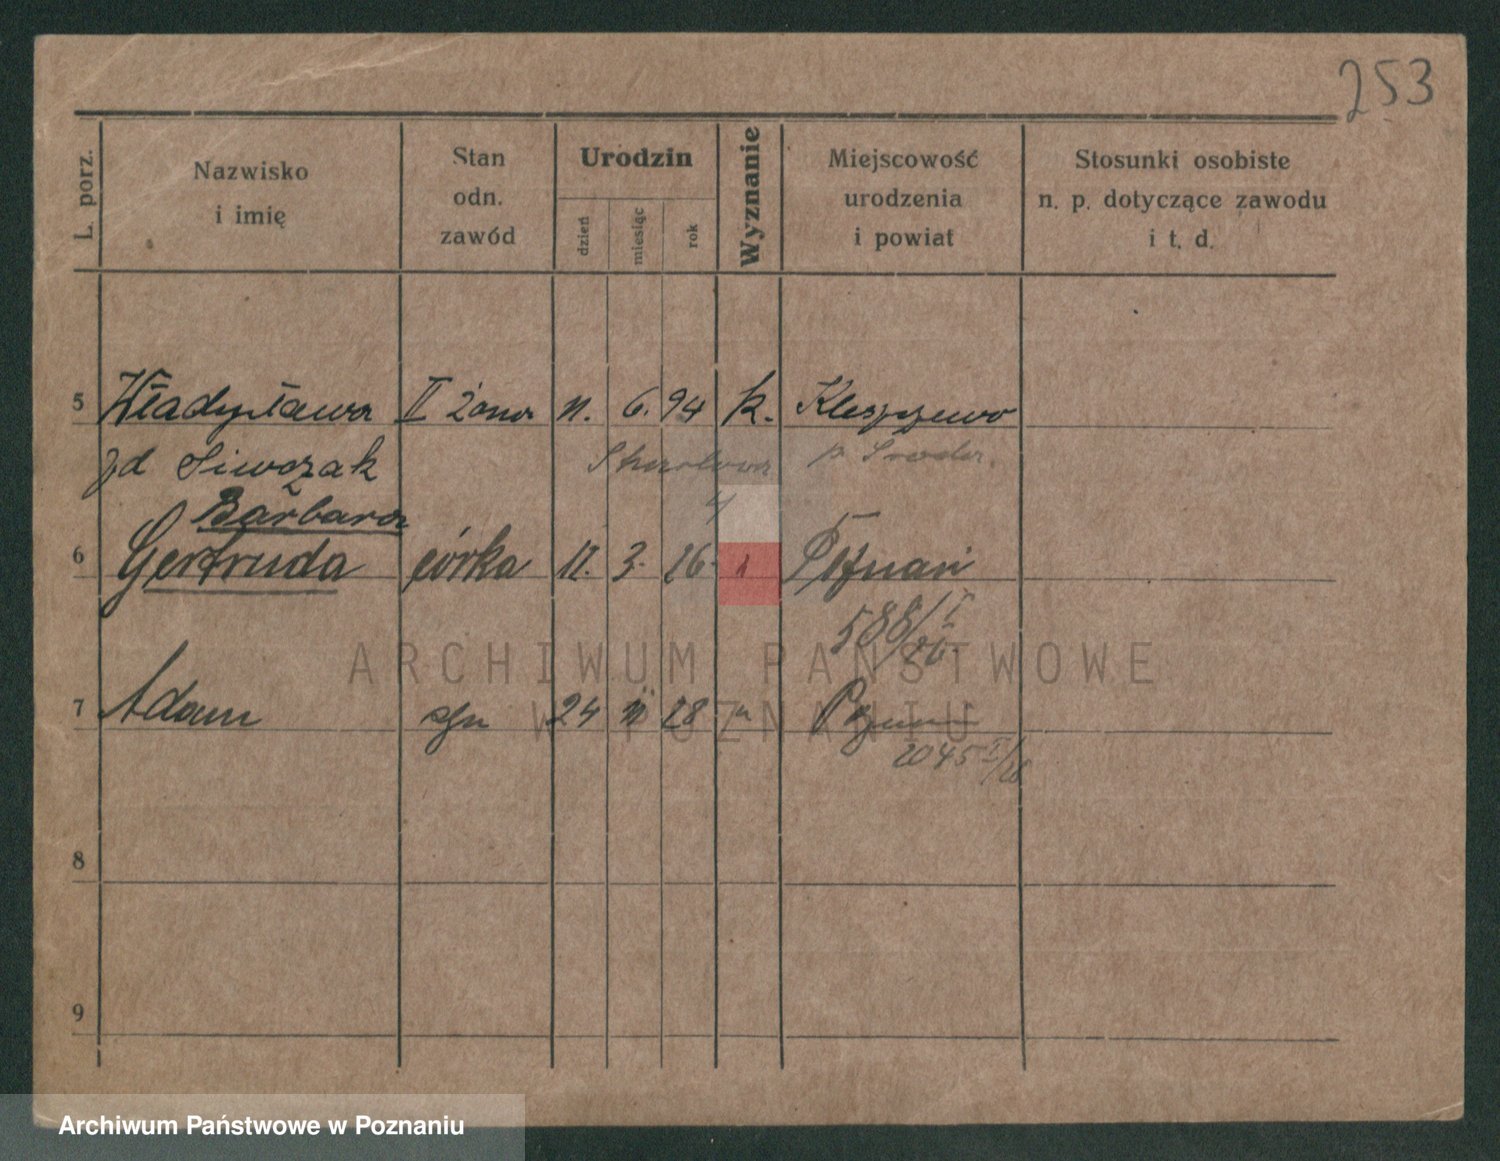 253
L. porz.
Nazwisko
i imię
Stan
odn.
zawód
Urodzin
dzień
miesiąc
rok
Wyznanie
Miejscowość
urodzenia
i powiat
Stosunki osobiste
n. p. dotyczące zawodu
i t. d.
5 Władysława II żona 11. 6. 94 k.
zd Siwczak p. Środa
Barbara
6 Gertruda córka 11. 3. 26. Poznań
588/I 26
7 Adam syn 24 28 "
2045 I/28
8
9
ARCHIWUM PAŃSTWOWE
W POZNANIU
Archiwum Państwowe w Poznaniu